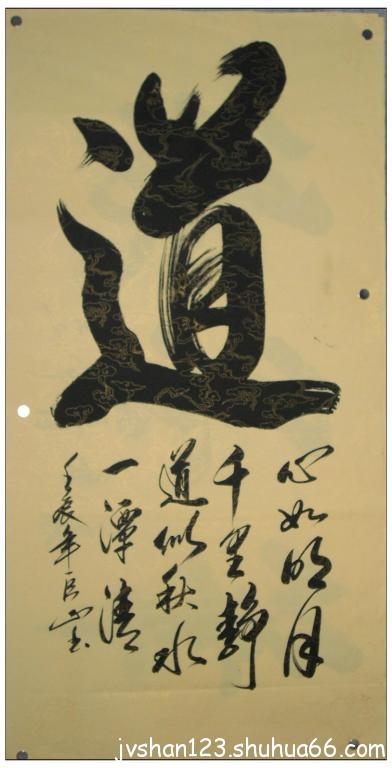 道
心如明月
千里静
道似秋水
一潭清
壬辰年巨山書
jvshan123.shuhua66.com